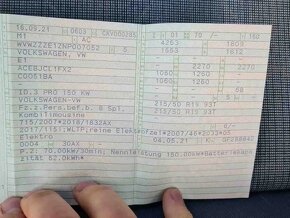 16.09.21 0603 CKV000285 01 70 160
M1 AC 4263 1809
WVWZZZE1ZNP007052 5 1553 1612
VOLKSWAGEN, VW
E1 2270 2270
ACEBJCL1FX2 1060 1260
C0051BA 1060 1260
58
ID.3 PRO 150 KW 5
VOLKSWAGEN, VW 215/50 R19 93T
Fz.z.Pers.bef.b. 8 Spl. 215/50 R19 93T
Kombilimousine
715/2007*2018/1832AX
2017/1151;WLTP;reine Elektrofz e1*2007/46*2033*05
Elektro
0004 30AX 04.05.21
P.2: 70.00kW/30min; Nennleistung 150.00kW*Batteriekapa
zität 62.0kWh*